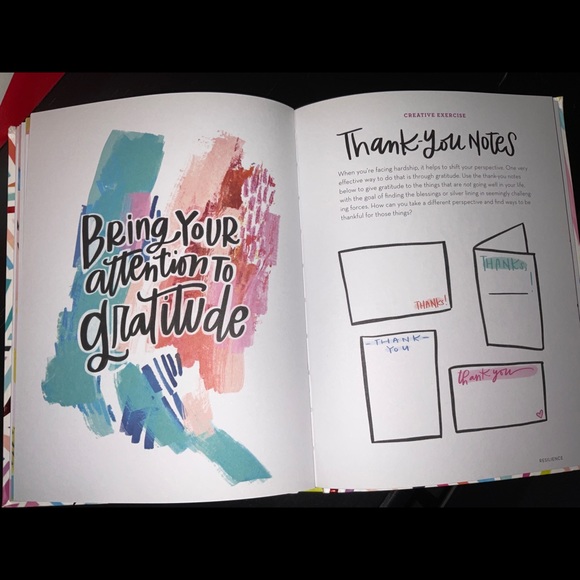 Bring Your
attention to
gratitude
CREATIVE EXERCISE
Thank-You Notes
When you're facing hardship, it helps to shift your perspective. One very
effective way to do that is through gratitude. Use the thank-you notes
below to give gratitude to the things that are not going well in your life,
with the goal of finding the blessings or silver lining in seemingly challeng
ing forces. How can you take a different perspective and find ways to be
thankful for those things?
THANKS!
THANKS
!
-THANK-
YOU
thank you
RESILIENCE